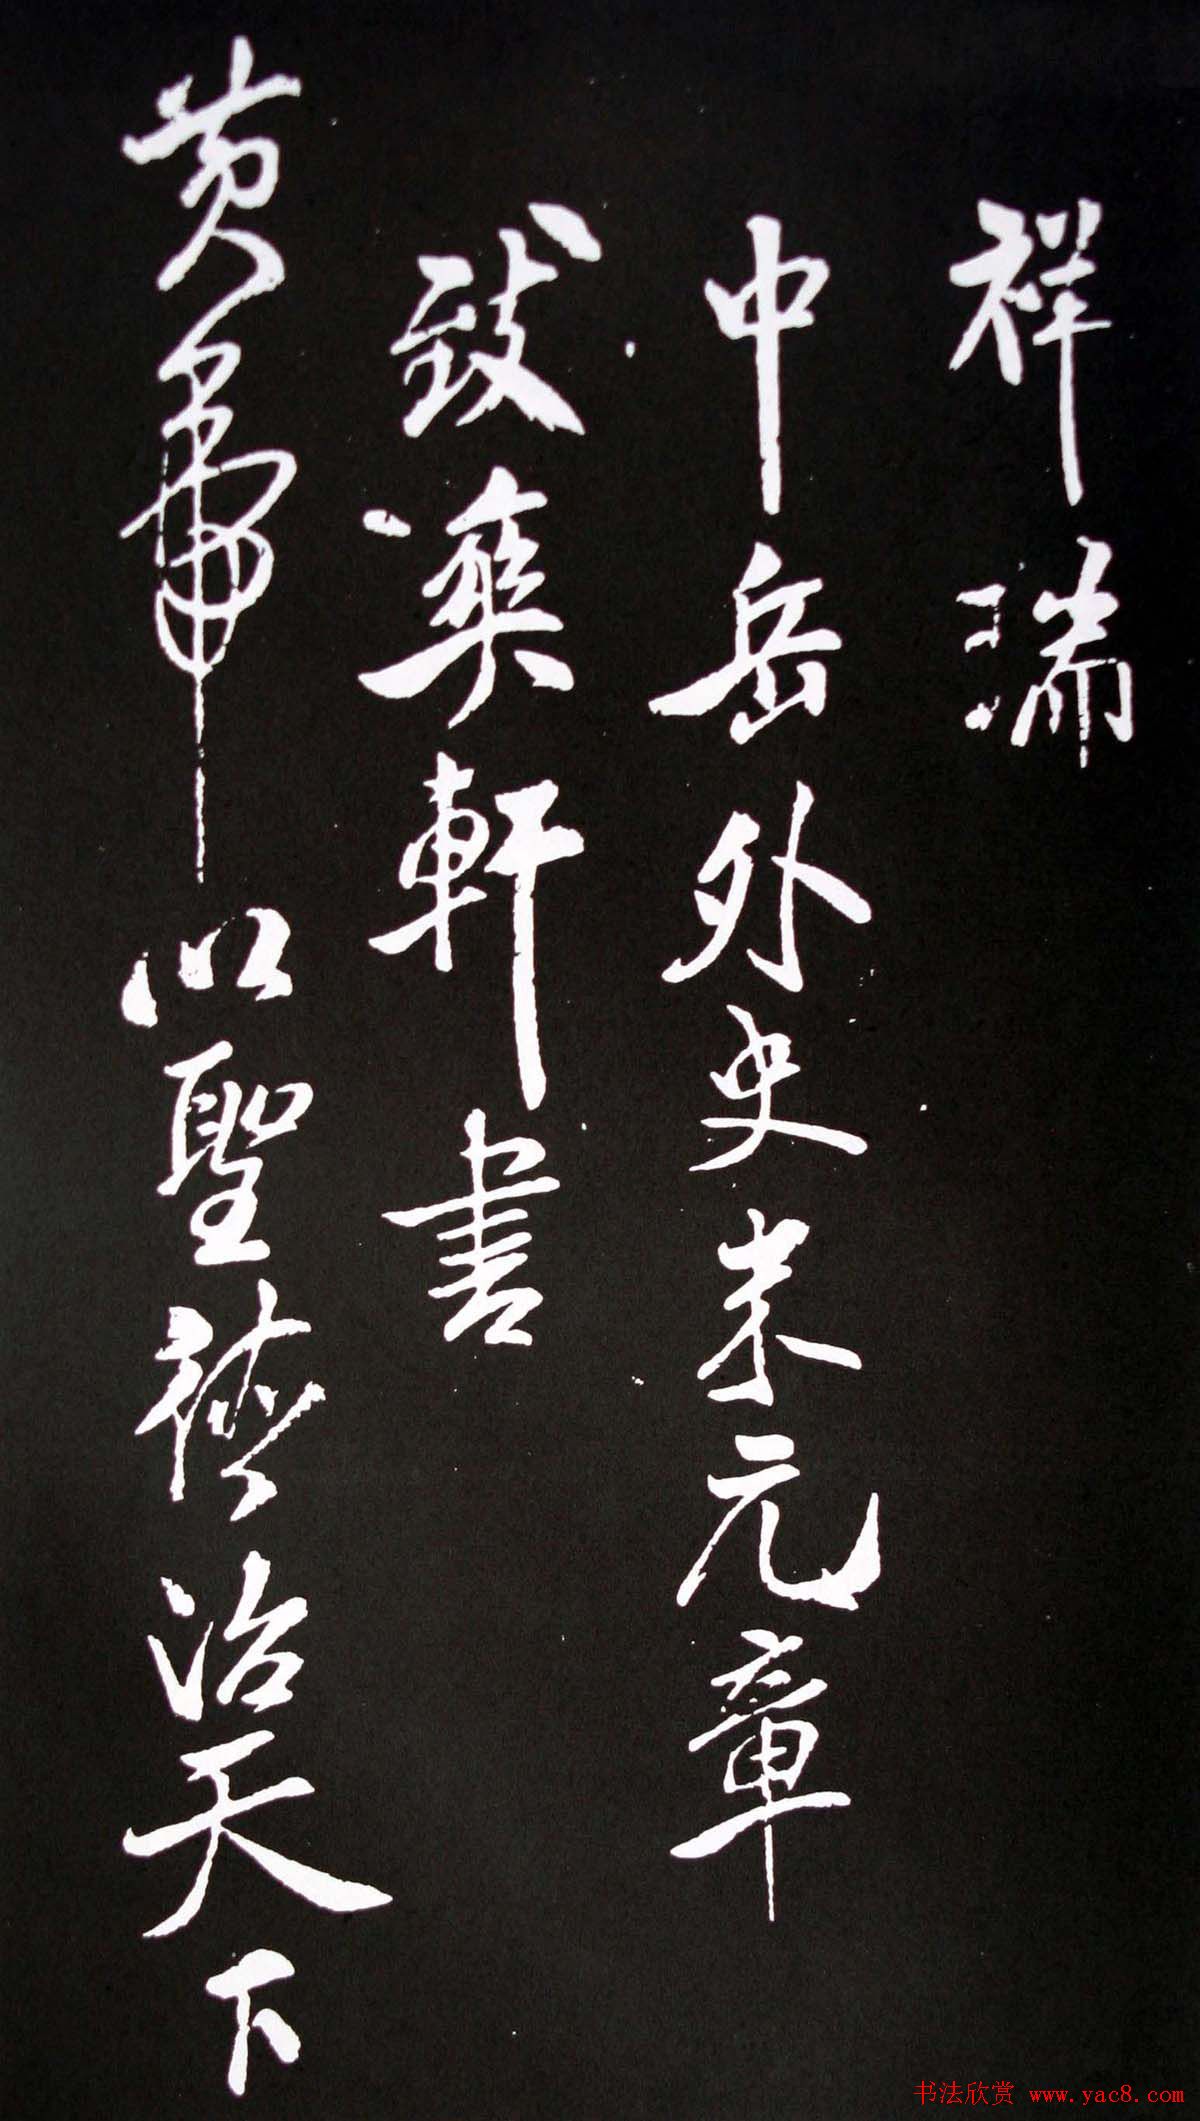 祥瑞
中岳外史米元章
致爽軒書
黃帝以聖治天下
书法欣赏 www.yac8.com